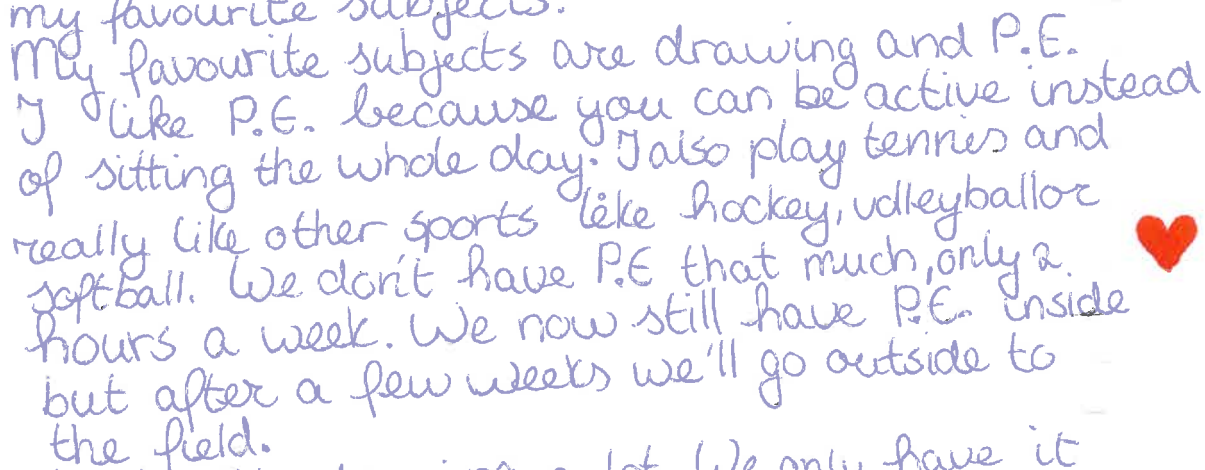 my favourite subjects.
My favourite subjects are drawing and P.E.
I like P.E. because you can be active instead
of sitting the whole day. I also play tennies and
really like other sports like hockey, volleyball or
softball. We don't have P.E that much, only 2
hours a week. We now still have P.E. inside
but after a few weeks we'll go outside to
the field.
a lot. We only have it